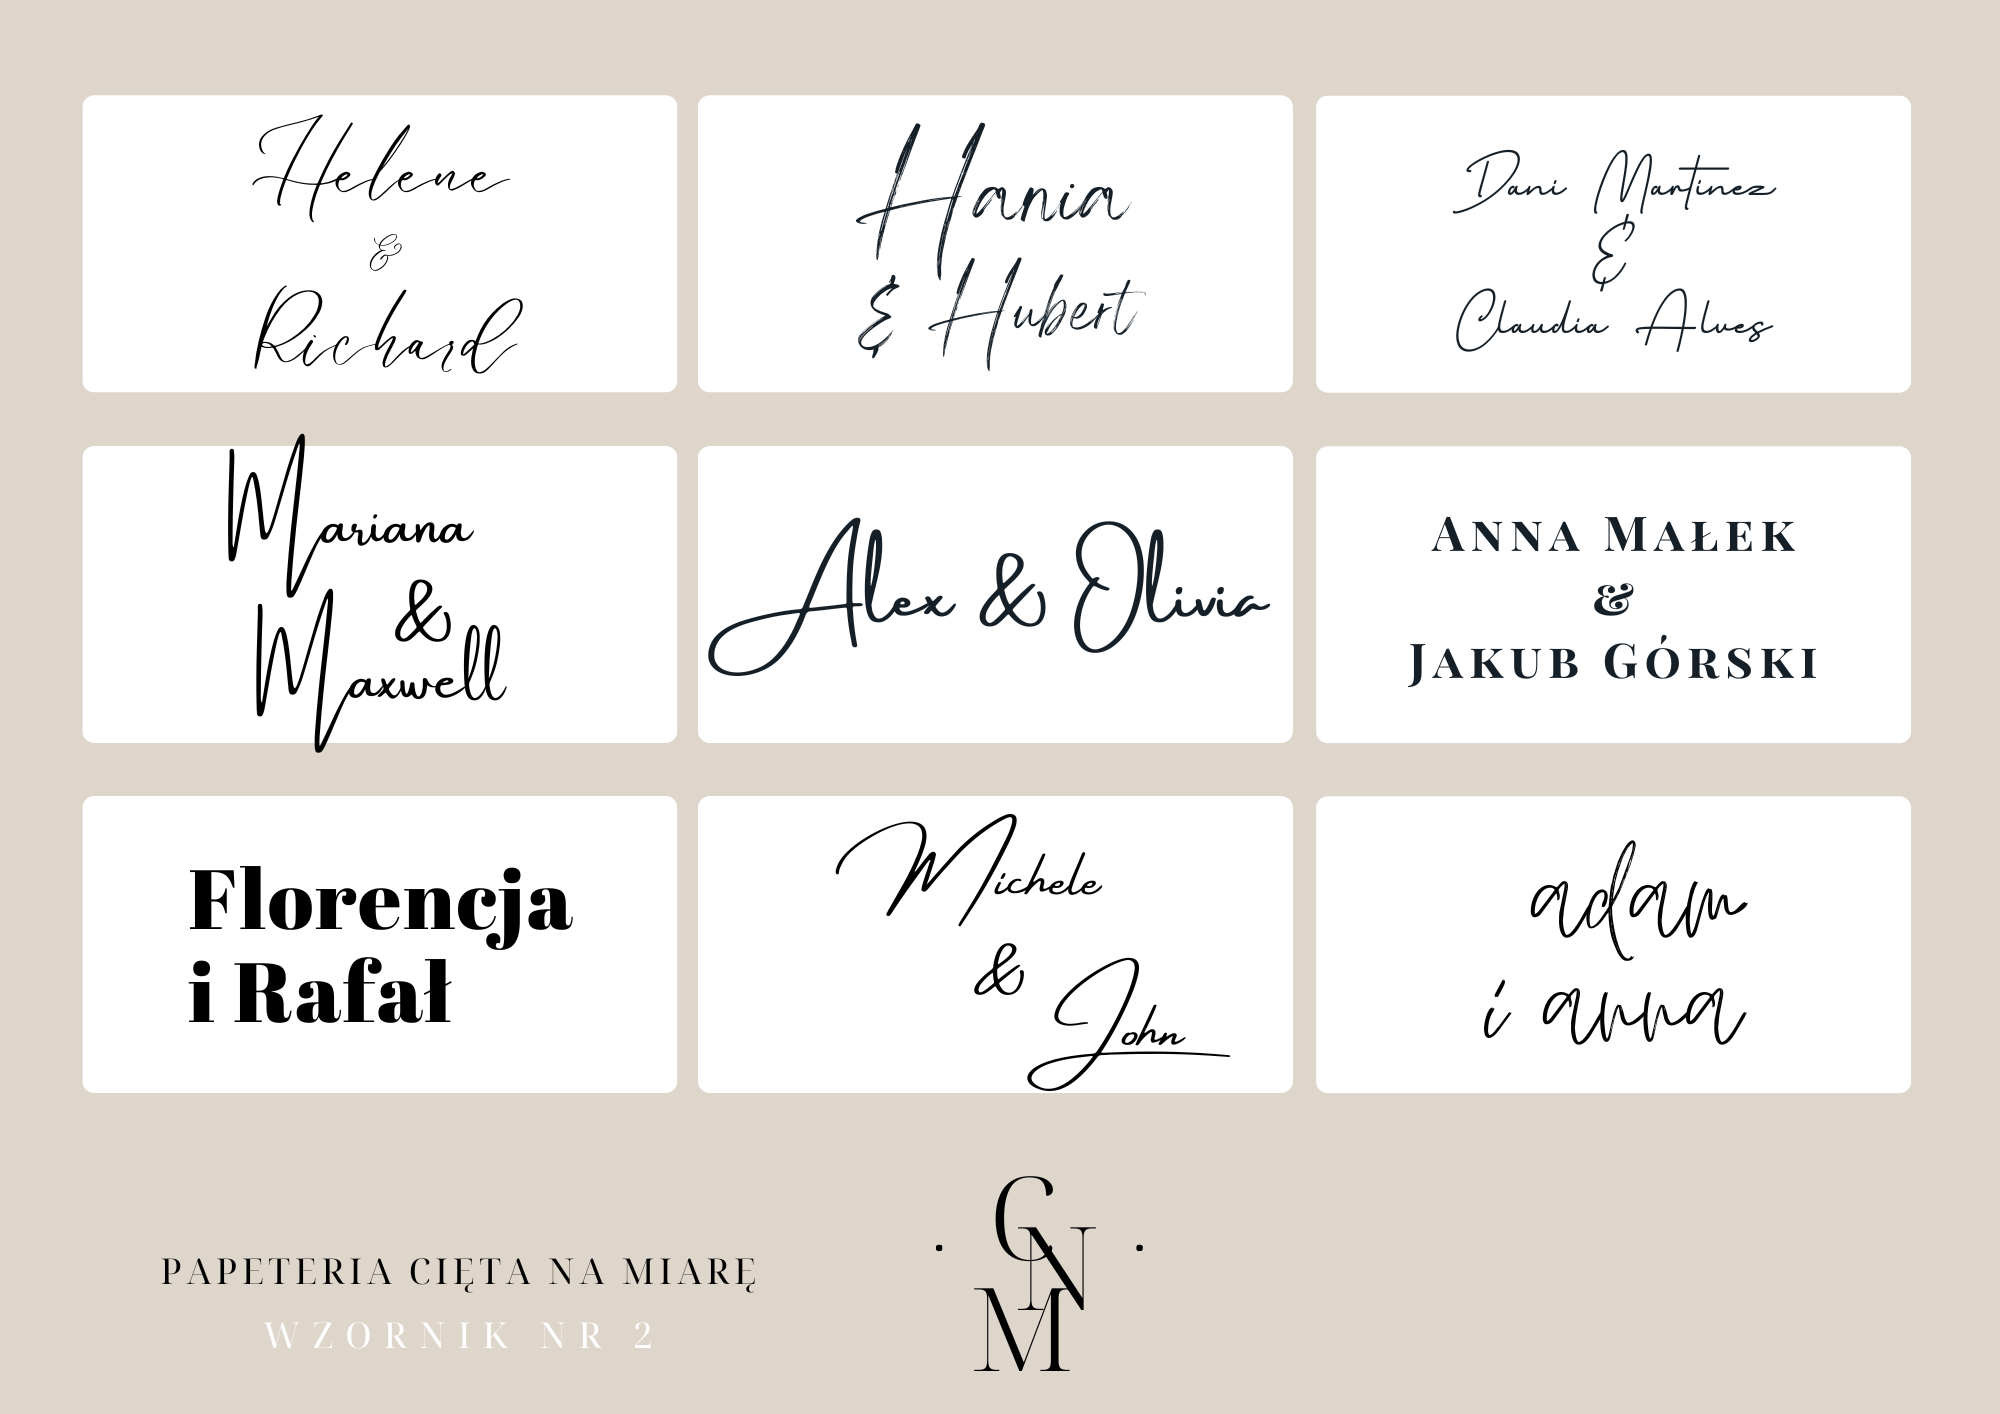 Helene
&
Richard
Hania
& Hubert
Dani Martinez
&
Claudia Alves
Mariana
&
Maxwell
Alex & Olivia
Anna Małek
&
Jakub Górski
Florencja
i Rafał
Michele
&
John
adam
i anna
PAPETERIA CIĘTA NA MIARĘ
WZORNIK NR 2
· CNM ·